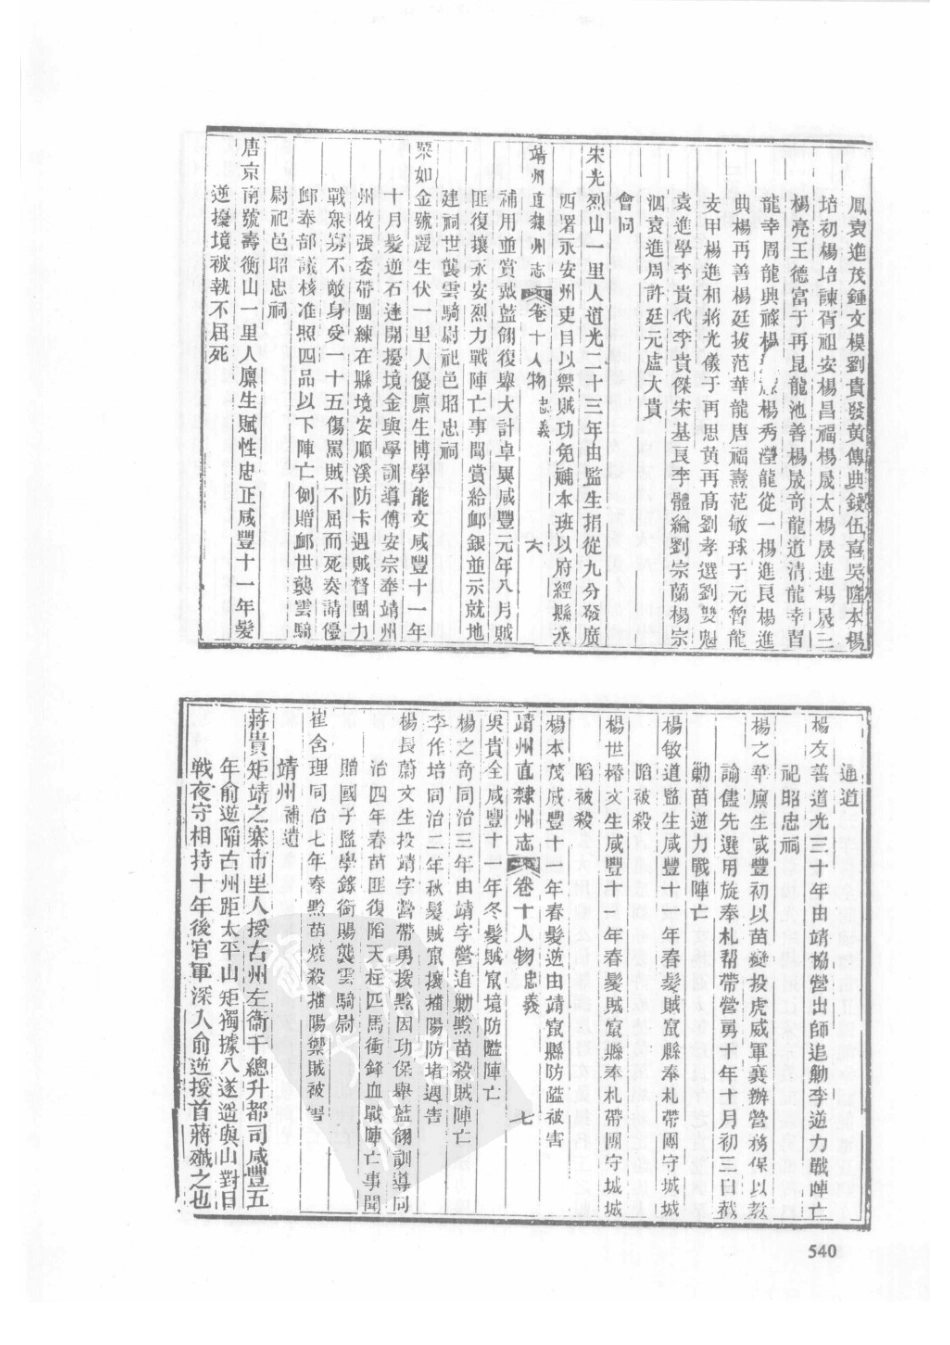 鳳袁進茂鍾文模劉貴發黃傳典錢伍喜吳隆本楊
培初楊培諫胥祖安楊昌福楊晟太楊晟連楊晟三
楊亮王德富于再昆龍池善楊晟奇龍道清龍幸習
龍幸周龍興祿楊 楊秀瀅龍從一楊進艮楊進
典楊再善楊廷拔范華龍唐福熹范敏球于元簪龍
支甲楊進相蔣光儀于再思黃再高劉孝選劉雙魁
袁進學李貴代李貴傑宋基艮李體綸劉宗蘭楊宗
泗袁進周許廷元盧大貴
會同
宋光烈山一里人道光二十三年由監生捐從九分發廣
西署永安州吏目以禦賊功免補本班以府經縣丞
靖州直隸州志 卷十人物 忠義 六
補用並賞戴藍翎復舉大計卓異咸豐元年八月賊
匪復攘永安烈力戰陣亡事聞賞給邮銀並示就地
建祠世襲雲騎尉祀邑昭忠祠
梁如金號麗生伏一里人優廩生博學能文咸豐十一年
十月髮逆石達開擾境金與學訓導傅安宗奉靖州
州牧張委帶團練在縣境安順溪防卡遇賊督團力
戰眾寡不敵身受一十五傷罵賊不屈而死奏請優
邮奉部議核准照四品以下陣亡例贈邮世襲雲騎
尉祀邑昭忠祠
唐京南號壽衡山一里人廩生賦性忠正咸豐十一年髮
逆擾境被執不屈死
通道
楊友善道光三十年由靖協營出師追勦李逆力戰陣亡
祀昭忠祠
楊之華廩生咸豐初以苗變投虎威軍襄辦營務保以教
諭儘先選用旋奉札帮帶營勇十年十月初三日截
勦苗逆力戰陣亡
楊敏道監生咸豐十一年春髮賊竄縣奉札帶團守城城
陷被殺
楊世椿文生咸豐十一年春髮賊竄縣奉札帶團守城城
陷被殺
楊本茂咸豐十一年春髮逆由靖竄縣防隘被害
靖州直隸州志 卷十人物 忠義 七
吳貴全咸豐十一年冬髮賊竄境防隘陣亡
楊之奇同治三年由靖字營追勦黔苗殺賊陣亡
李作培同治二年秋髮賊竄擾播陽防堵遇害
楊長蔚文生投靖字營帶勇援黔因功保舉藍翎訓導同
治四年春苗匪復陷天柱匹馬衝鋒血戰陣亡事聞
贈國子監學錄銜賜襲雲騎尉
崔含理同治七年春黔苗燒殺播陽禦賊被害
靖州補遺
蔣貴矩靖之寨市里人授古州左衞千總升都司咸豐五
年俞逆陷古州距太平山矩獨據八遂遥與山對日
戰夜守相持十年後官軍深入俞逆授首蔣殲之也
540